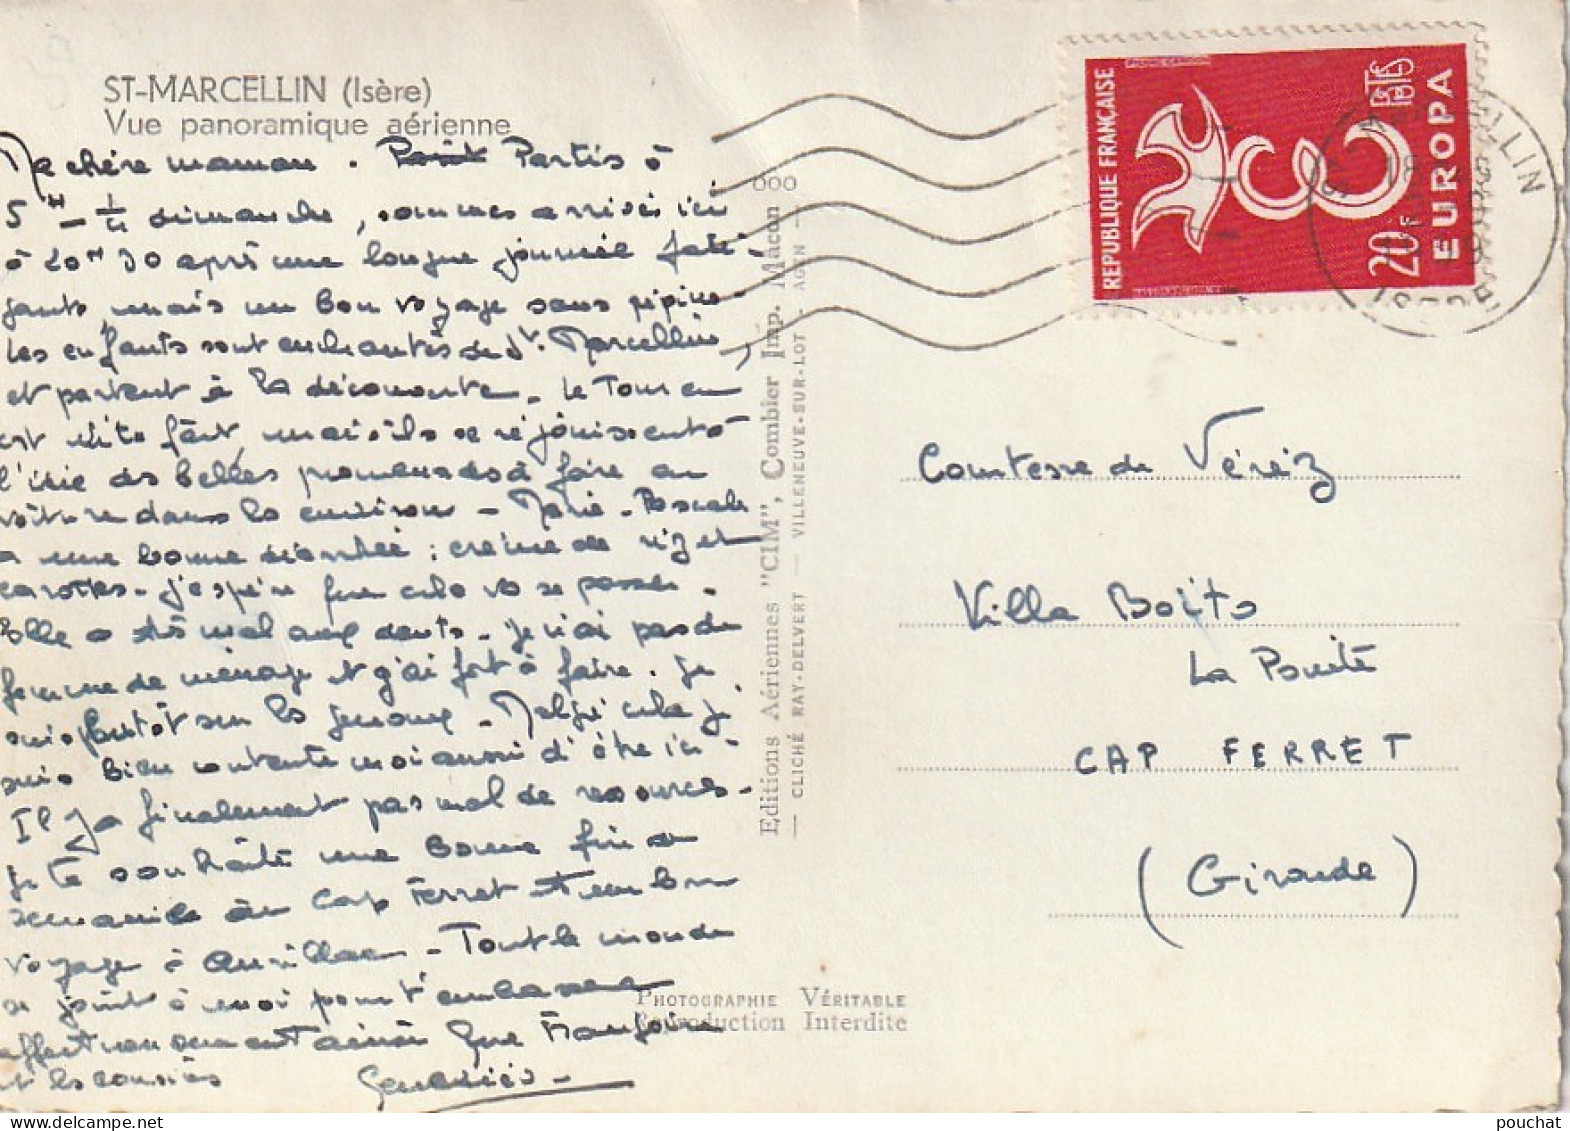 ST-MARCELLIN (Isère)
Vue panoramique aérienne
Ma chère maman. Partis à
5H - 1/4 dimanche, sommes arrivés ici
à 20H 30 après une longue journée fati-
gante, mais un bon voyage sans pépins.
Les enfants sont enchantés de St. Marcellin,
et partent à la découverte. Le Tour en
est vite fait, mais ils se réjouissent à
l'idée des belles promenades à faire en
voiture dans les environs. Marie-Pascale
a une bonne diarrhée : crème de riz et
carottes. J'espère que cela va se passer.
Elle a très mal aux dents. Je n'ai pas de
femme de ménage et j'ai fort à faire. Je
suis plutôt sur les genoux. Malgré cela je
suis bien contente moi aussi d'être ici.
Il y a finalement pas mal de ressources.
Je te souhaite une bonne fin de
semaine au Cap Ferret et un bon
voyage à Aurillac. Tout le monde
se joint à moi pour t'embrasser
affectueusement ainsi que Françoise
et les cousins
Geneviève
Editions Aériennes "CIM", Combier Imp. Macon 000
— CLICHÉ RAY-DELVERT — VILLENEUVE-SUR-LOT - AGEN —
PHOTOGRAPHIE VÉRITABLE
Reproduction Interdite
RÉPUBLIQUE FRANÇAISE
20F
EUROPA
ISÈRE
Comtesse de
Villa Boïto
La Pointe
CAP FERRET
(Gironde)
pouchat